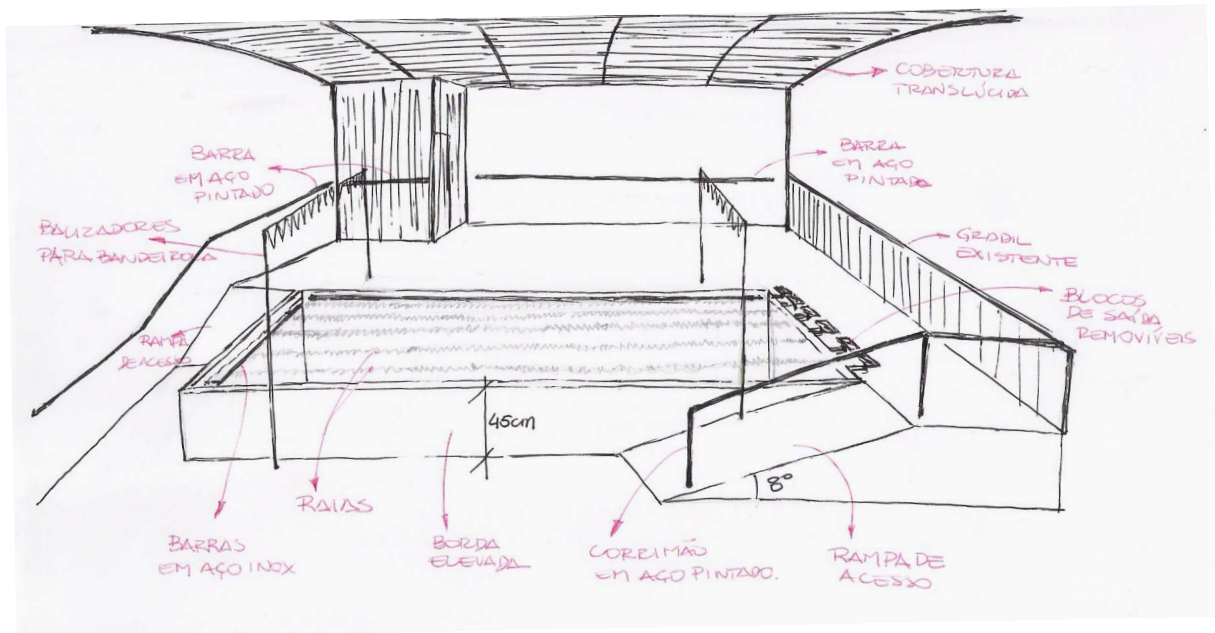 COBERTURA
TRANSLÚCIDA
BARRA
EM AÇO
PINTADO
BARRA
EM AÇO
PINTADO
BALIZADORES
PARA BANDEIROLA
GRADIL
EXISTENTE
BLOCOS
DE SAÍDA
REMOVÍVEIS
RAMPA
DE ACESSO
45cm
8°
RAIAS
BARRAS
EM AÇO INOX
BORDA
ELEVADA
CORRIMÃO
EM AÇO PINTADO.
RAMPA DE
ACESSO